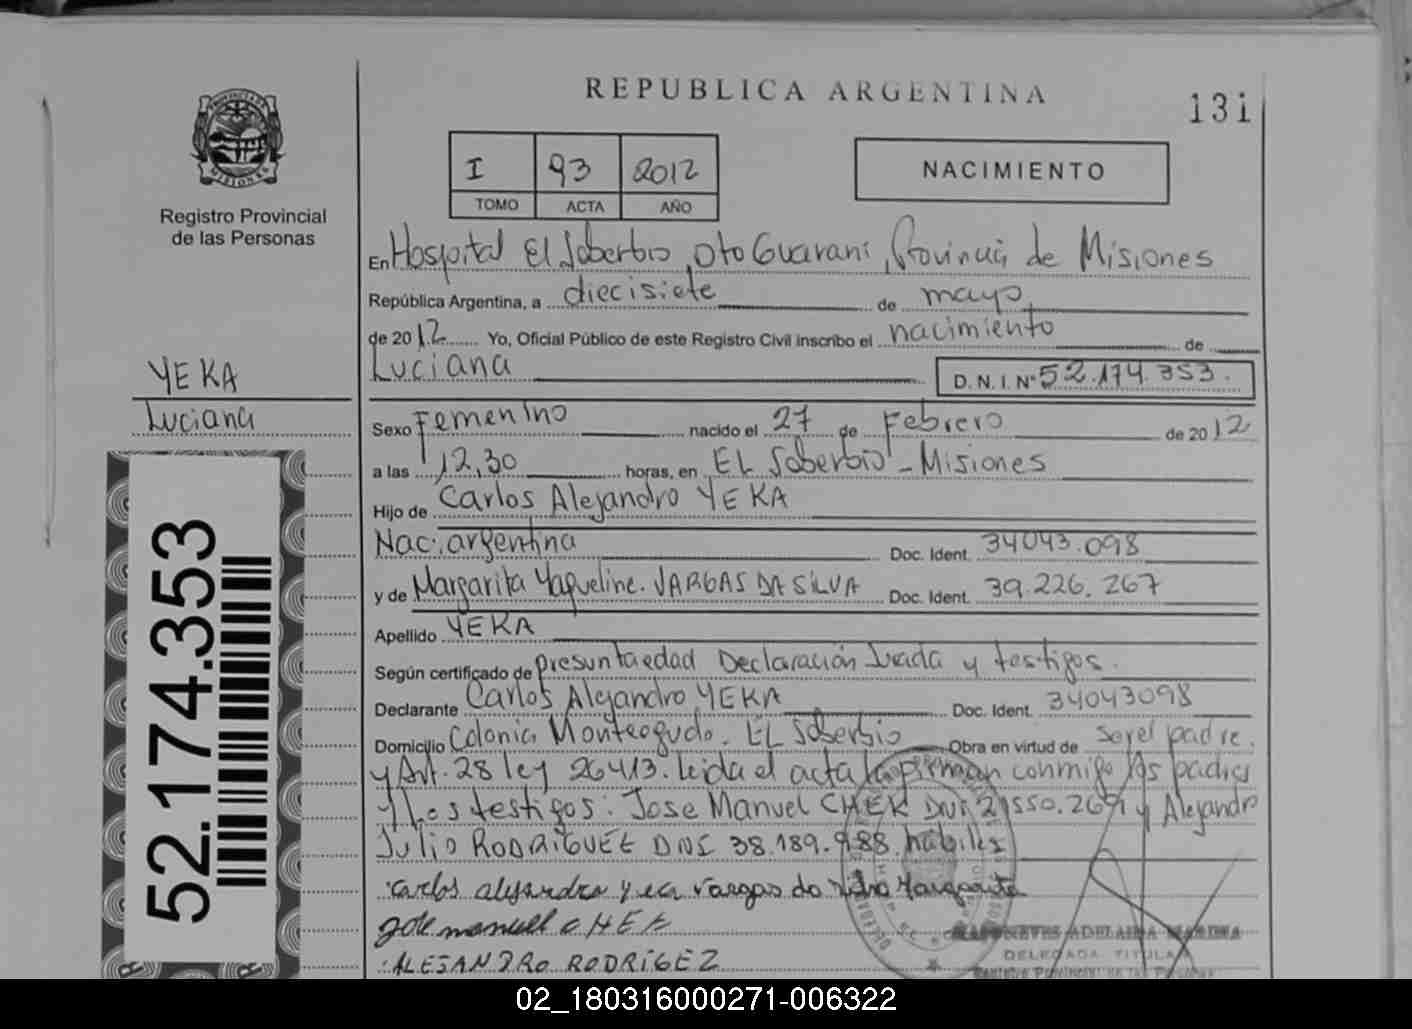 REPUBLICA ARGENTINA
131
PROVINCIA DE
MISIONES
Registro Provincial
de las Personas
I 93 2012
TOMO ACTA AÑO
NACIMIENTO
En Hospital El Soberbio, Dto Guarani, Provincia de Misiones
República Argentina, a diecisiete de mayo
de 2012 Yo, Oficial Público de este Registro Civil inscribo el nacimiento de
Luciana D.N.I. N° 52.174.353.
YEKA
Luciana
Sexo Femenino nacido el 27 de Febrero de 2012
a las 12,30 horas, en EL Soberbio - Misiones
Hijo de Carlos Alejandro YEKA
Nac: argentina Doc. Ident. 34043.098
y de Margarita Yaqueline. VARGAS DA SILVA Doc. Ident. 39.226.267
Apellido YEKA
Según certificado de presunta edad Declaración Jurada y testigos.
Declarante Carlos Alejandro YEKA Doc. Ident. 34043098
Domicilio Colonia Monteagudo. EL Soberbio Obra en virtud de ser el padre.
y Art. 28 ley 26413. Leida el acta la firman conmigo los padres
y Los testigos: Jose Manuel CHEK DNI 21550.269 y Alejandro
Julio RODRIGUEZ DNI 38.189.988 habiles
carlos alejandro yeka Vargas da Margarita
Jose manuel CHEK
ALESANDRO RODRIGEZ
NEVES ADELAIDA
DELEGADA TITULAR
Registro Provincial de las Personas
52.174.353
02_180316000271-006322